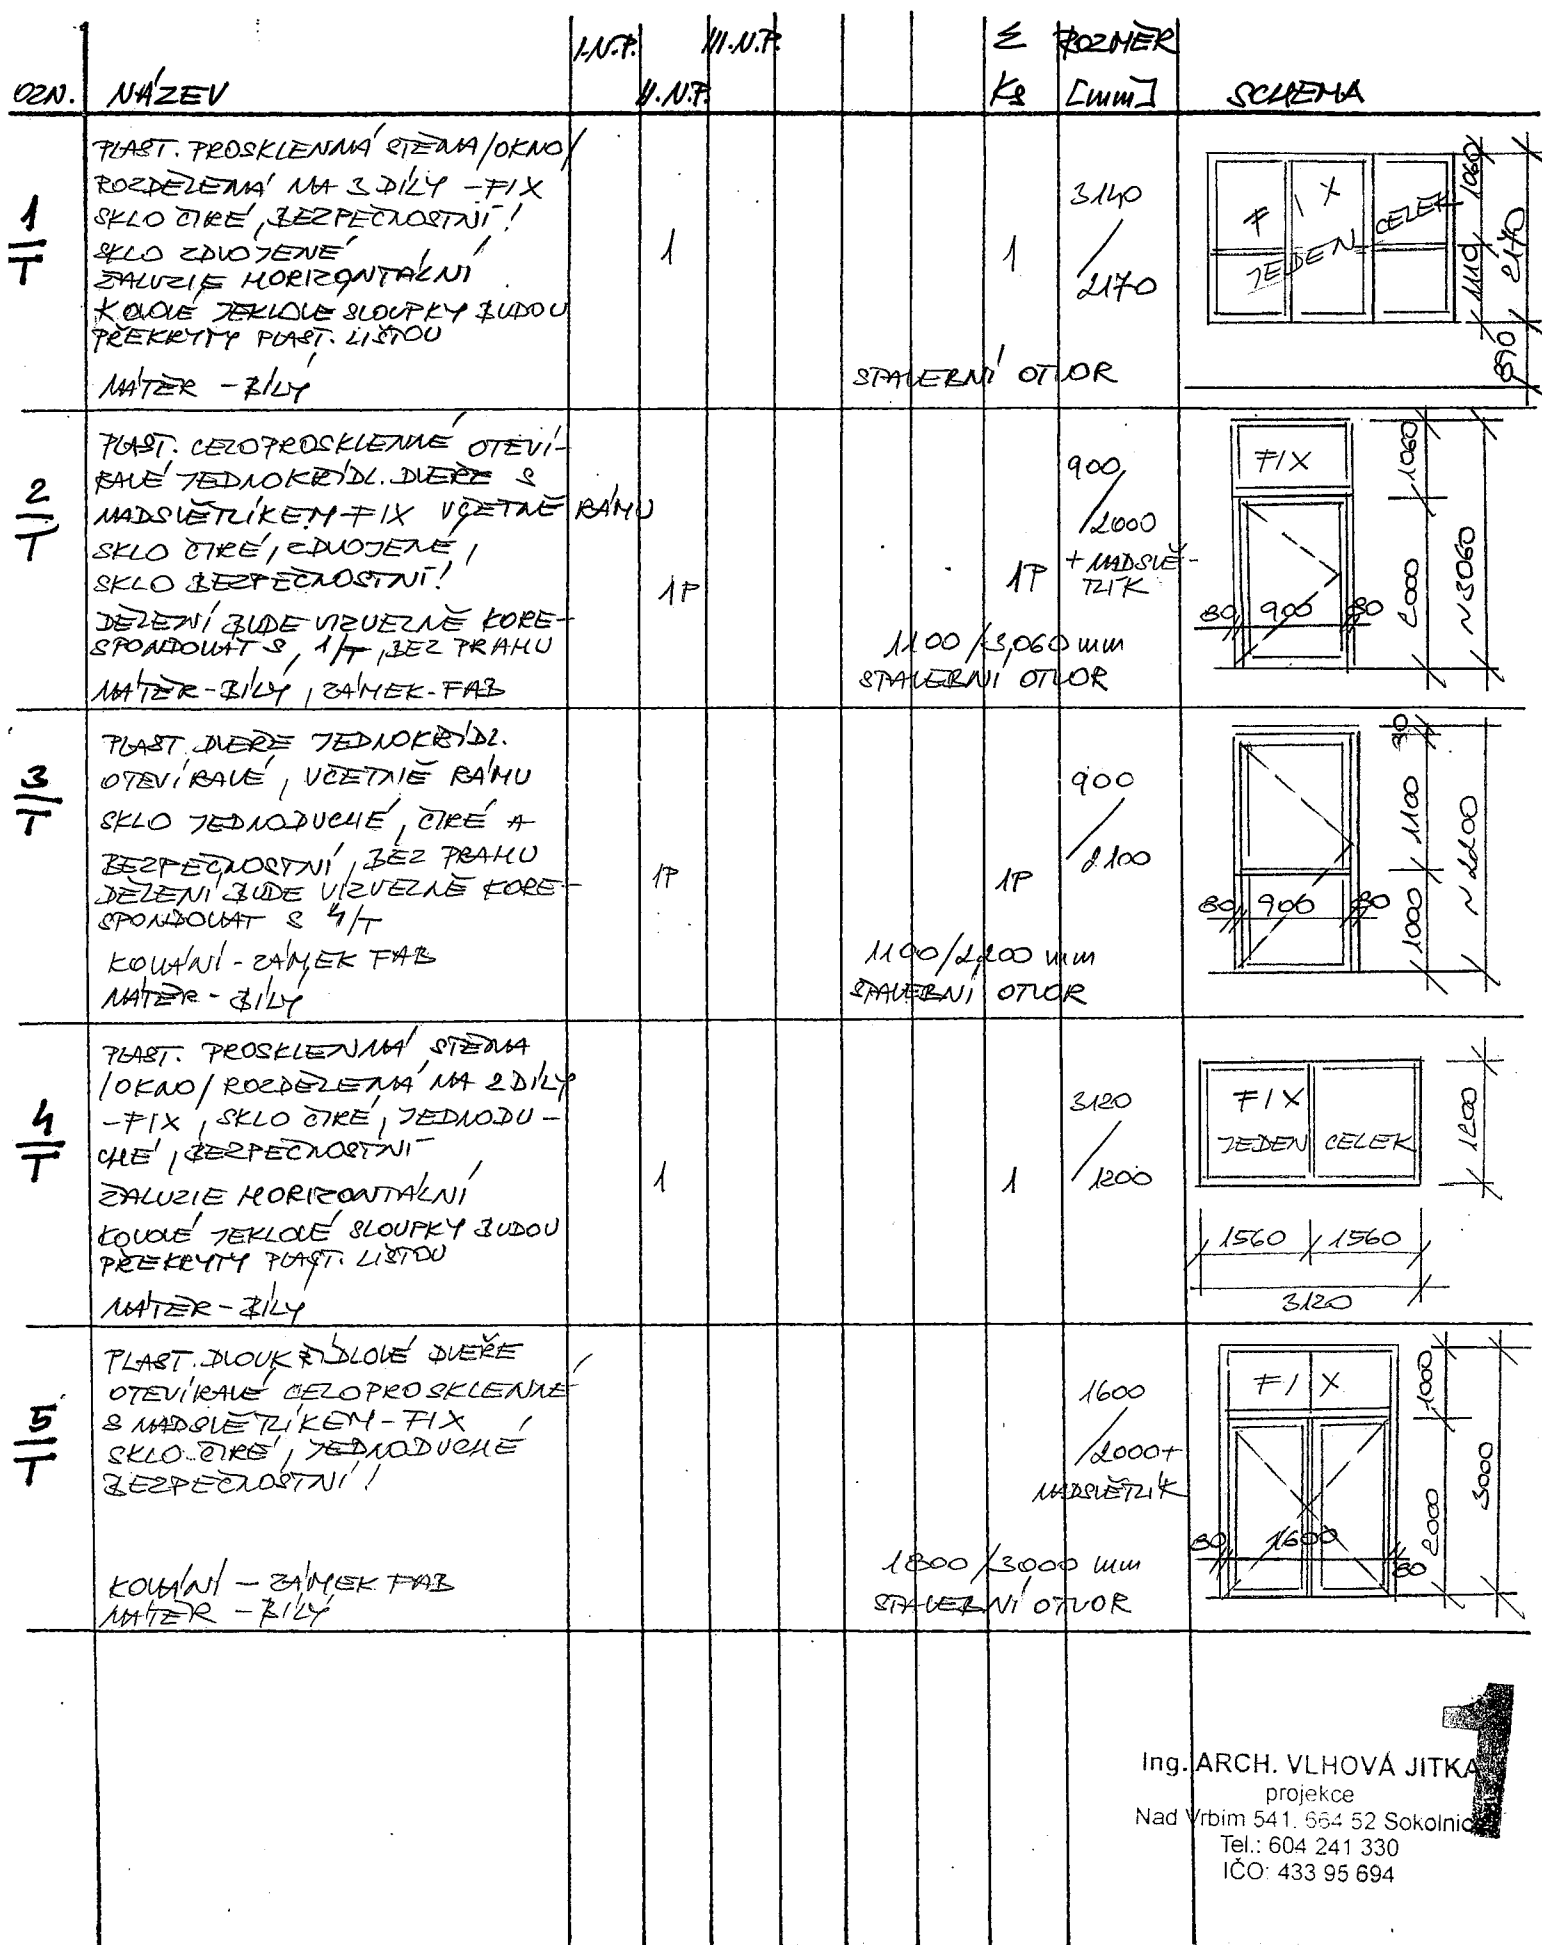 I.N.P. III.N.P. Σ ROZMĚR
OZN. NÁZEV II.N.P. Ks [mm] SCHEMA
1/T
PLAST. PROSKLENNÁ STĚNA /OKNO/
ROZDĚLENÁ NA 3 DÍLY - FIX
SKLO ČIRÉ, BEZPEČNOSTNÍ!
SKLO ZDVOJENÉ
ŽALUZIE HORIZONTÁLNÍ
KOVOVÉ JEKLOVÉ SLOUPKY BUDOU
PŘEKRYTY PLAST. LIŠTOU
NÁTĚR - BÍLÝ
1
1
3140
/
2170
STAVEBNÍ OTVOR
FIX
JEDEN CELEK
1060
1110
2170
890
2/T
PLAST. CELOPROSKLENNÉ OTEVÍ-
RAVÉ JEDNOKŘÍDL. DVEŘE S
NADSVĚTLÍKEM-FIX VČETNĚ RÁMU
SKLO ČIRÉ, ZDVOJENÉ,
SKLO BEZPEČNOSTNÍ!
DĚLENÍ BUDE VIZUELNĚ KORE-
SPONDOVAT S 1/T, BEZ PRAHU
NÁTĚR-BÍLÝ, ZÁMEK-FAB
1P
1P
900
/2000
+ NADSVĚ-
TLÍK
1100/3,060 mm
STAVEBNÍ OTVOR
FIX
80 900 80
1060
2000
~3060
3/T
PLAST. DVEŘE JEDNOKŘÍDL.
OTEVÍRAVÉ, VČETNĚ RÁMU
SKLO JEDNODUCHÉ, ČIRÉ A
BEZPEČNOSTNÍ, BEZ PRAHU
DĚLENÍ BUDE VIZUELNĚ KORE-
SPONDOVAT S 4/T
KOVÁNÍ - ZÁMEK FAB
NÁTĚR - BÍLÝ
1P
1P
900
/
2100
1100/2,200 mm
STAVEBNÍ OTVOR
80 900 80
1100
1000
~2200
4/T
PLAST. PROSKLENNÁ STĚNA
/OKNO/ ROZDĚLENÁ NA 2 DÍLY
-FIX, SKLO ČIRÉ, JEDNODU-
CHÉ, BEZPEČNOSTNÍ
ŽALUZIE HORIZONTÁLNÍ
KOVOVÉ JEKLOVÉ SLOUPKY BUDOU
PŘEKRYTY PLAST. LIŠTOU
NÁTĚR - BÍLÝ
1
1
3120
/
1200
FIX
JEDEN CELEK
1200
1560 1560
3120
5/T
PLAST. DVOUKŘÍDLOVÉ DVEŘE
OTEVÍRAVÉ CELOPROSKLENNÉ
S NADSVĚTLÍKEM - FIX
SKLO ČIRÉ, JEDNODUCHÉ
BEZPEČNOSTNÍ!
KOVÁNÍ - ZÁMEK FAB
NÁTĚR - BÍLÝ
1600
/2000+
NADSVĚTLÍK
1800/3000 mm
STAVEBNÍ OTVOR
FIX
80 1600 80
1000
2000
3000
1
Ing. ARCH. VLHOVÁ JITKA
projekce
Nad Vrbim 541. 664 52 Sokolnice
Tel.: 604 241 330
IČO: 433 95 694